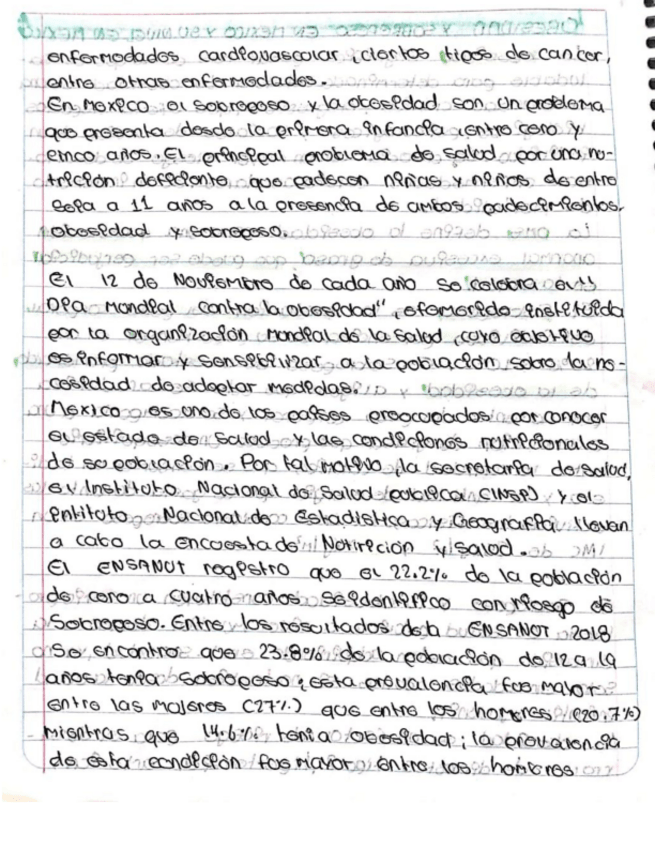 enfermedades cardiovascular, ciertos tipos de cancer,
entre otras enfermedades.
En Mexico el sobrepeso y la obesidad son un problema
que presenta desde la primera infancia, entre cero y
cinco años. El principal problema de salud por una nu-
trición deficiente que padecen niñas y niños de entre
seis a 11 años a la presencia de ambos padecimientos,
obesidad y sobrepeso.
El 12 de Noviembre de cada año se celebra el
Dia Mundial contra la obesidad", efemeride instituida
por la organización mundial de la salud, cuyo objetivo
es informar y sensibilizar a la población sobre la ne-
cesidad de adoptar medidas.
Mexico es uno de los países preocupados por conocer
el estado de salud y las condiciones nutricionales
de su población. Por tal motivo, la secretaria de salud,
el Instituto Nacional de Salud publica (INSP) y el
Nacional de Estadistica y Geografia, llevan
a cabo la encuesta de Nutrición y salud.
El ENSANUT registro que el 22.2% de la población
de cero a cuatro años se identifico con riesgo de
Sobrepeso. Entre los resultados de la ENSANUT 2018
Se encontro que 23.8% de la población de 12 a 19
años tenia sobrepeso; esta prevalencia fue mayor
entre las mujeres (27%) que entre los hombres (20.7%)
mientras que 14.6% tenia obesidad; la prevalencia
de esta condición fue mayor entre los hombres